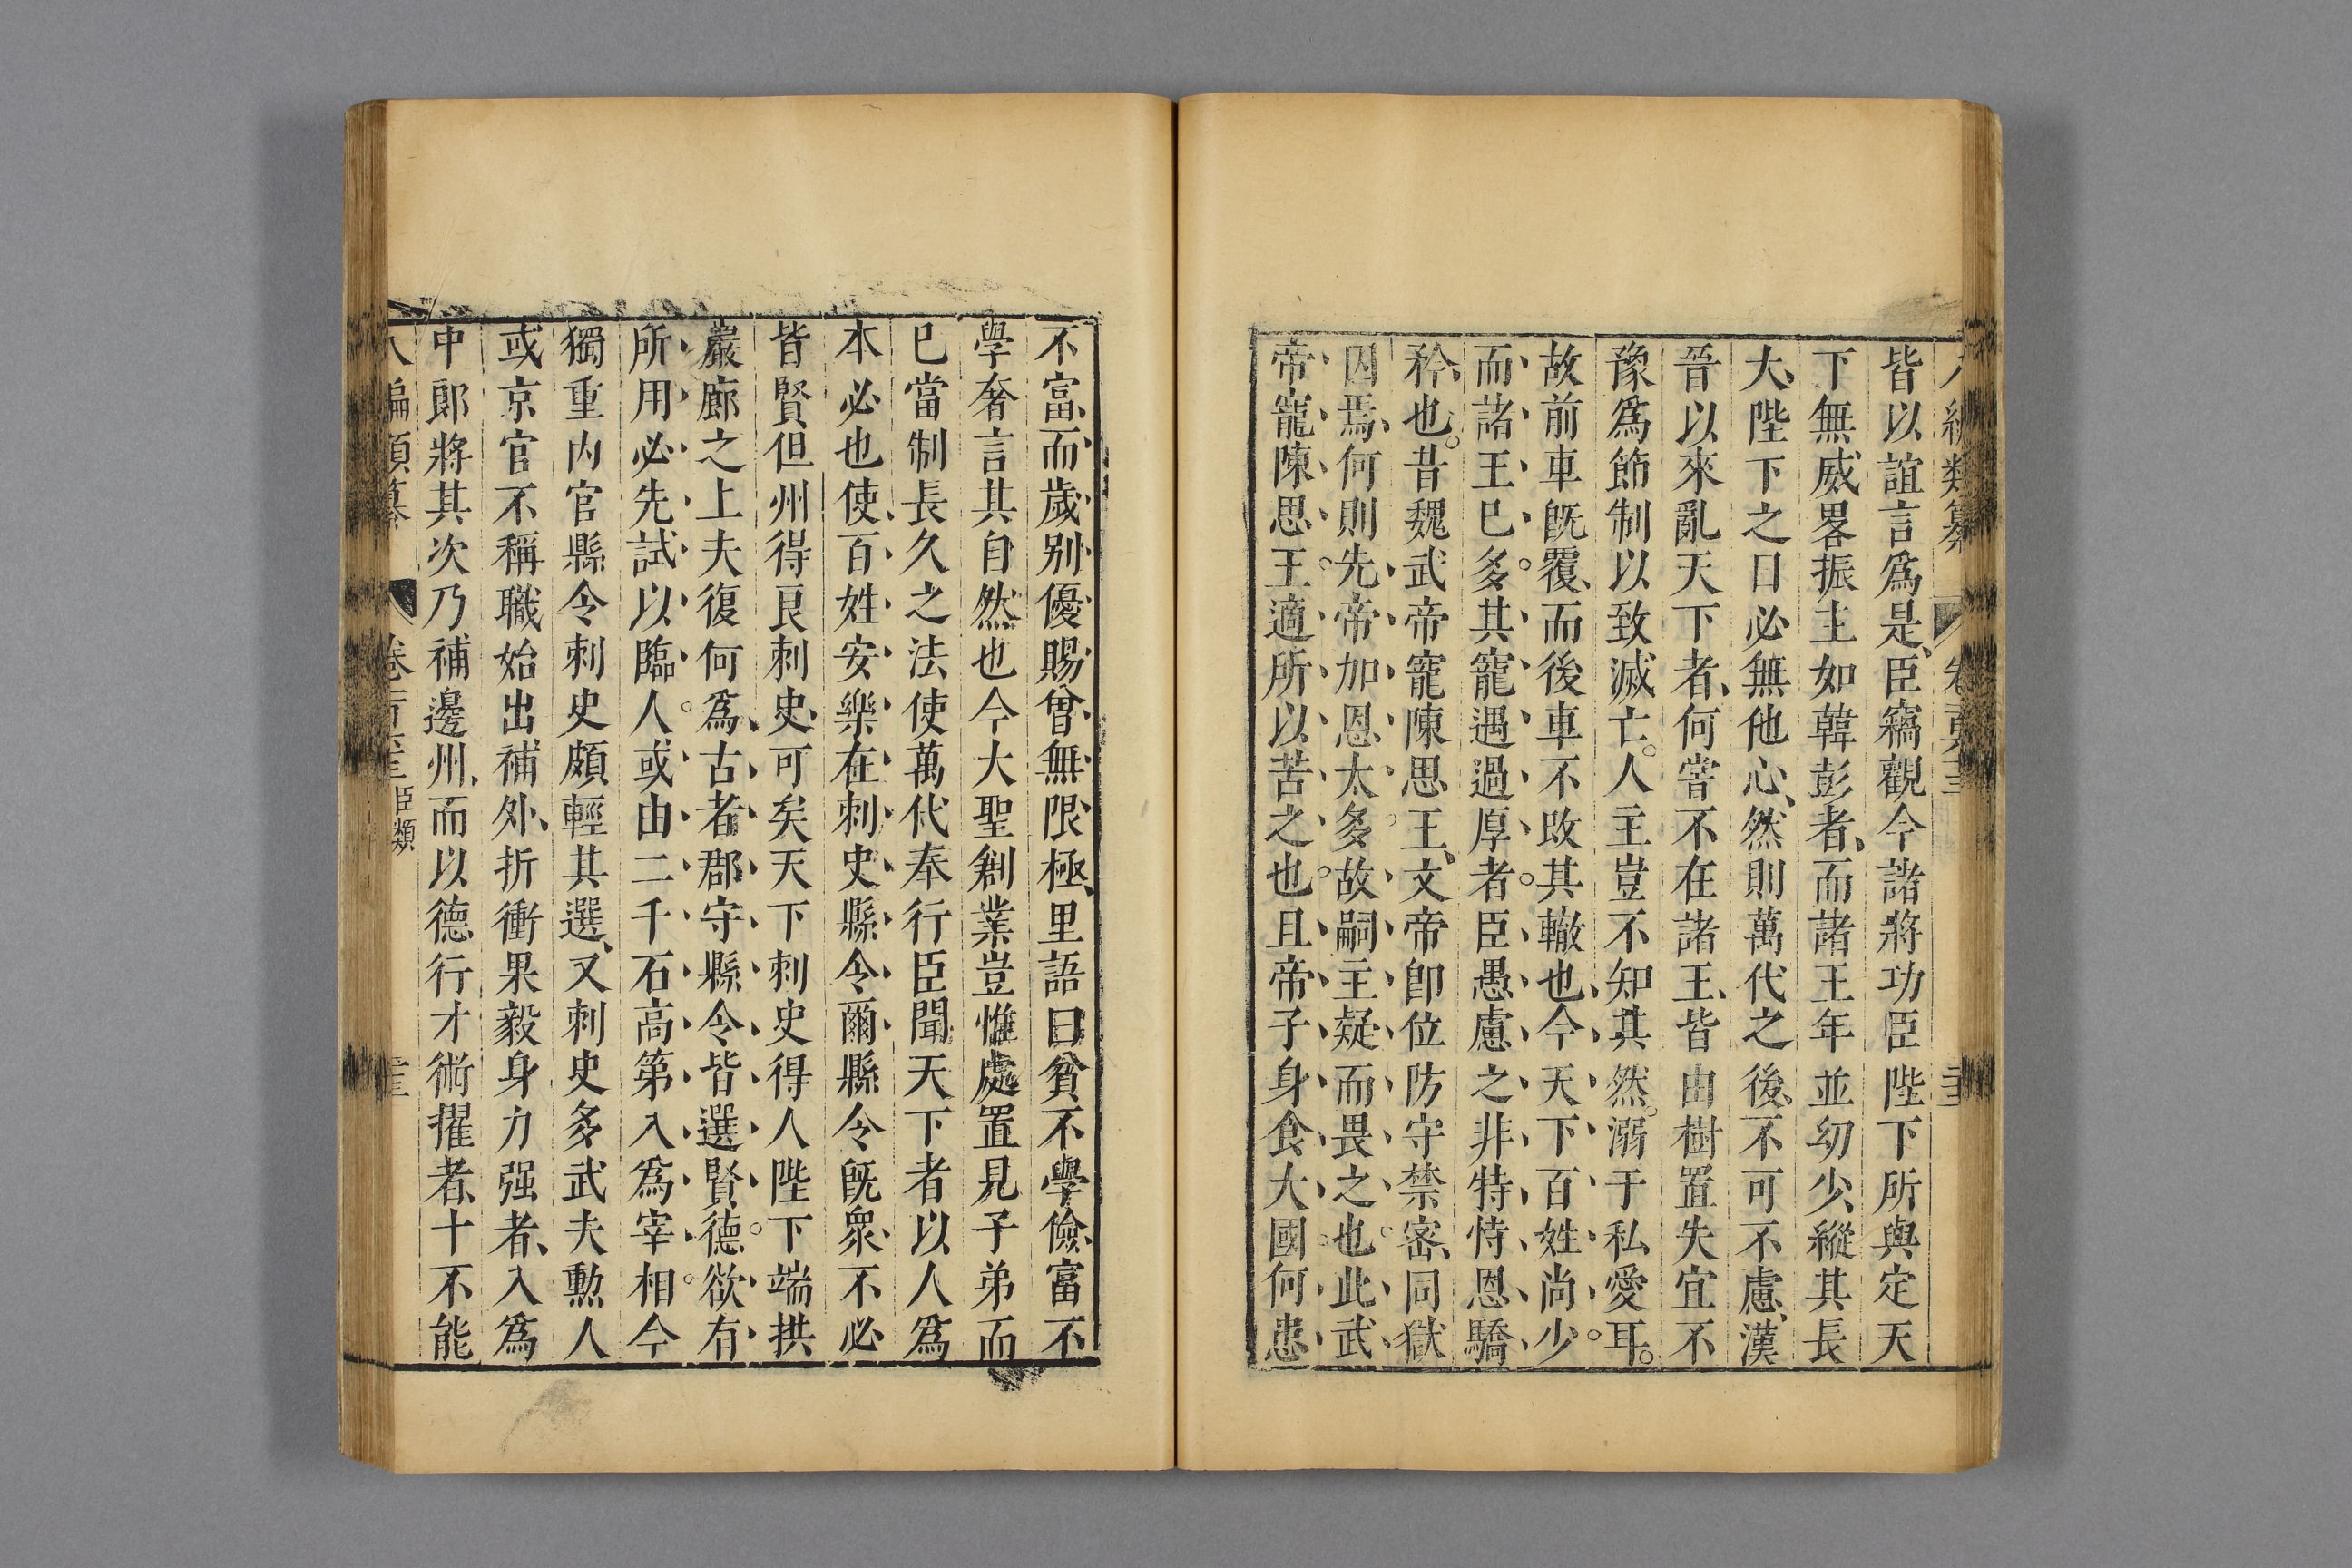 皆以誼言爲是臣竊觀今諸將功臣陛下所與定天
下無威畧振主如韓彭者而諸王年並幼少縱其長
大陛下之日必無他心然則萬代之後不可不慮漢
晉以來亂天下者何嘗不在諸王皆由樹置失宜不
豫爲節制以致滅亡人主豈不知其然溺于私愛耳
故前車旣覆而後車不改其轍也今天下百姓尚少
而諸王巳多其寵遇過厚者臣愚慮之非特恃恩驕
矜也昔魏武帝寵陳思王文帝卽位防守禁密同獄
囚焉何則先帝加恩太多故嗣主疑而畏之也此武
帝寵陳思王適所以苦之也且帝子身食大國何患
不富而歲别優賜曾無限極里語曰貧不學儉富不
學奢言其自然也今大聖創業豈惟處置見子弟而
巳當制長久之法使萬代奉行臣聞天下者以人爲
本必也使百姓安樂在刺史縣令爾縣令旣衆不必
皆賢但州得良刺史可矣天下刺史得人陛下端拱
巖廊之上夫復何爲古者郡守縣令皆選賢德欲有
所用必先試以臨人或由二千石高第入爲宰相今
獨重内官縣令刺史頗輕其選又刺史多武夫勲人
或京官不稱職始出補外折衝果毅身力强者入爲
中郎將其次乃補邊州而以德行才術擢者十不能
臣類